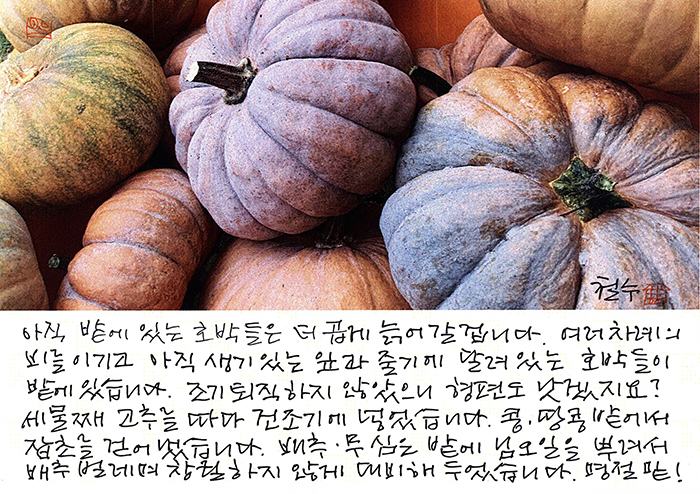 철수
아직 밭에 있는 호박들은 더 곱게 늙어갈겁니다. 여러차례의
비를 이기고 아직 생기있는 잎과 줄기에 달려있는 호박들이
밭에 있습니다. 조기퇴직하지 않았으니 형편도 낫겠지요?
세물째 고추를 따다 건조기에 넣었습니다. 콩·땅콩밭에서
잡초를 걷어냈습니다. 배추·무 심은 밭에 님오일을 뿌려서
배추벌레며 창궐하지 않게 대비해 두었습니다. 명절 끝!